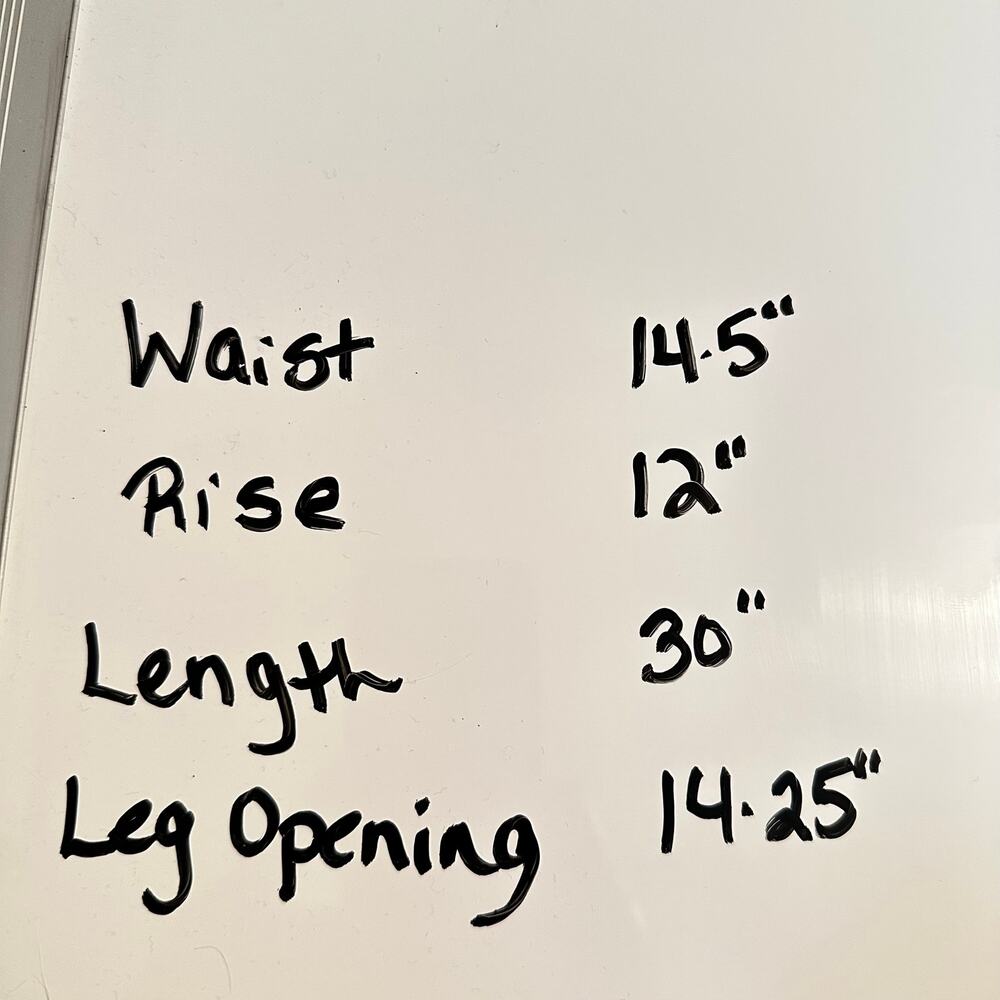 Waist 14.5"
Rise 12"
Length 30"
Leg Opening 14.25"